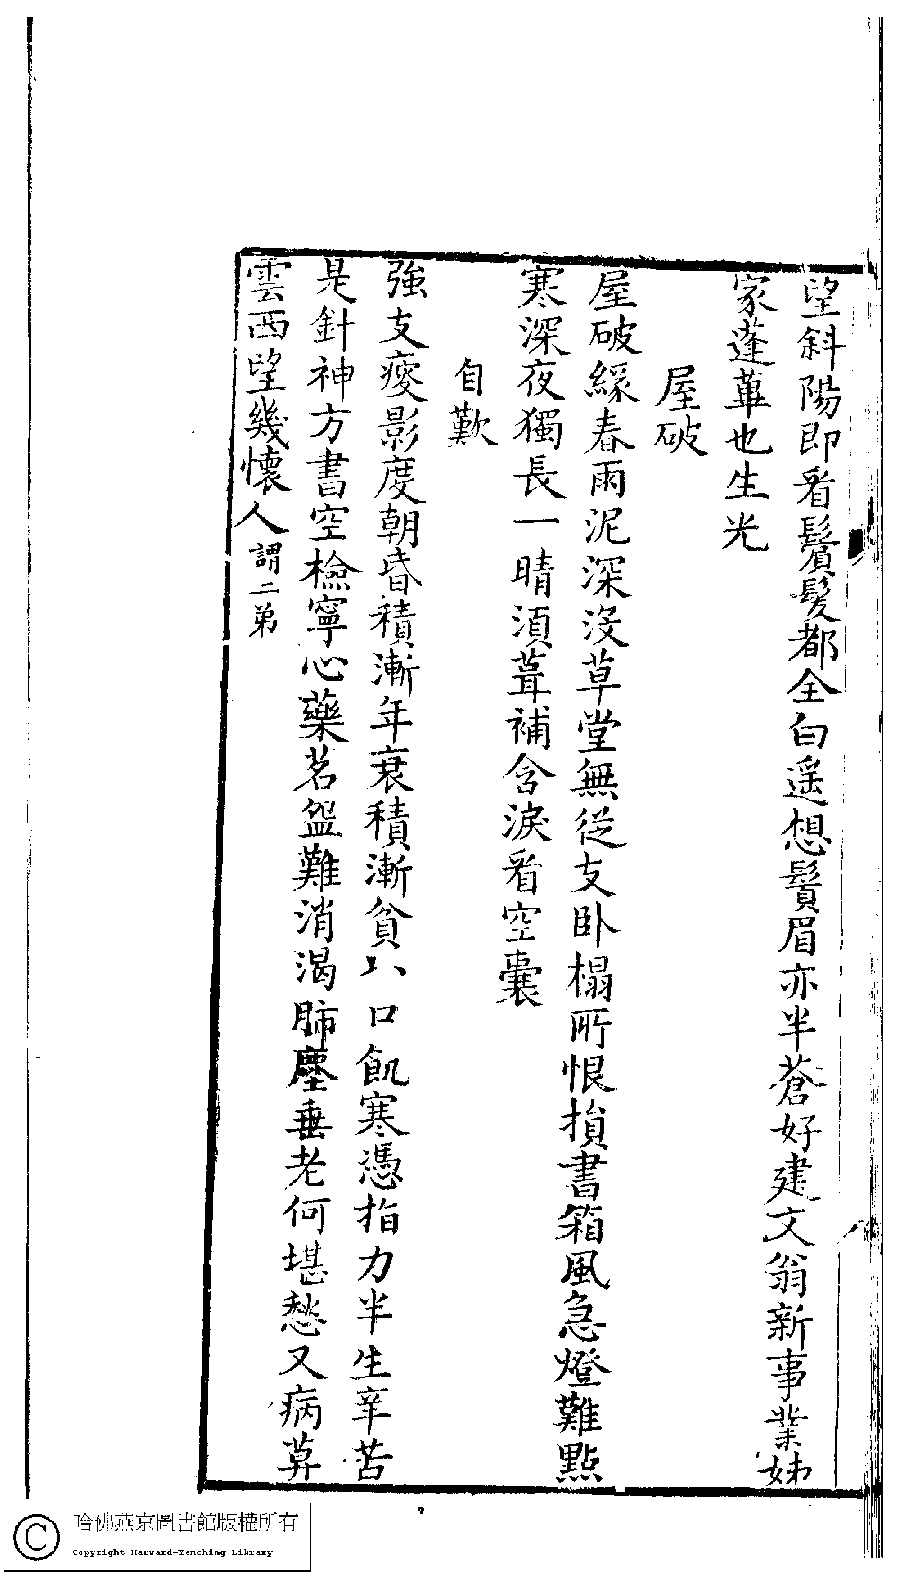 望斜陽即看鬢髮都全白遥想鬢眉亦半蒼好建文翁新事業姊
家蓬蓽也生光
屋破
屋破緣春雨泥深沒草堂無從支卧榻所恨損書箱風急燈難點
寒深夜獨長一晴須葺補含淚看空囊
自歎
強支瘦影度朝昏積漸年衰積漸貧八口飢寒憑指力半生辛苦
是針神方書空檢寧心藥茗盌難消渴肺塵垂老何堪愁又病莫
雲西望幾懷人謂二弟
哈佛燕京圖書館版權所有
Copyright Harvard-Yenching Library